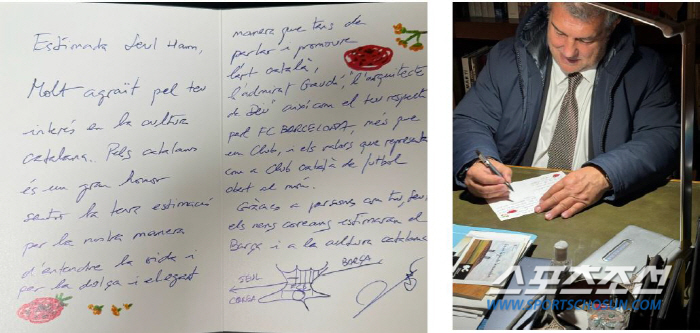 Estimada Seul Haun,
Molt agraït pel teu
interès en la cultura
catalana. Pels catalans
és un gran honor
sentir la teva estimació
per la nostra manera
d'entendre la vida i
per la dolça i elegant
manera que tens de
parlar i promoure
l'art català,
l'admirat Gaudí, "l'arquitecte
de Déu" així com el teu respecte
pel FC BARCELONA, més que
un Club, i els valors que representa
com a Club català de futbol
obert al món.
Gràcies a persones com tu, Seul,
els nens coreans estimaran el
Barça i a la cultura catalana
SEUL
COREA
BARÇA
스포츠조선
WWW.SPORTSCHOSUN.COM